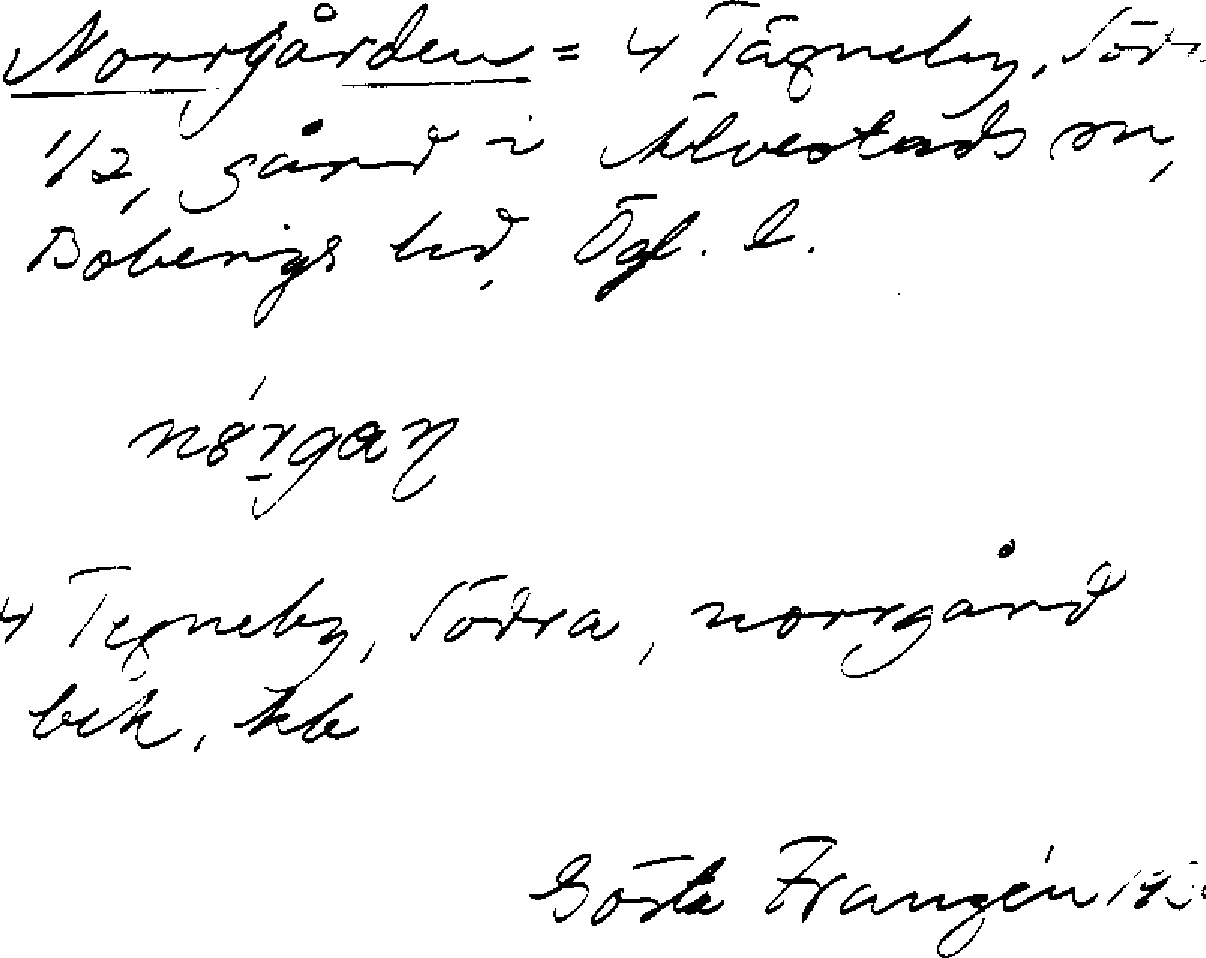 Norrgården = 4 Tägneby, Söd
1/2, gård i Älvestads sn,
Bobergs hd, Ögl. l.
4 Tegneby, Södra, norrgård
bek, kb
Gösta Franzén